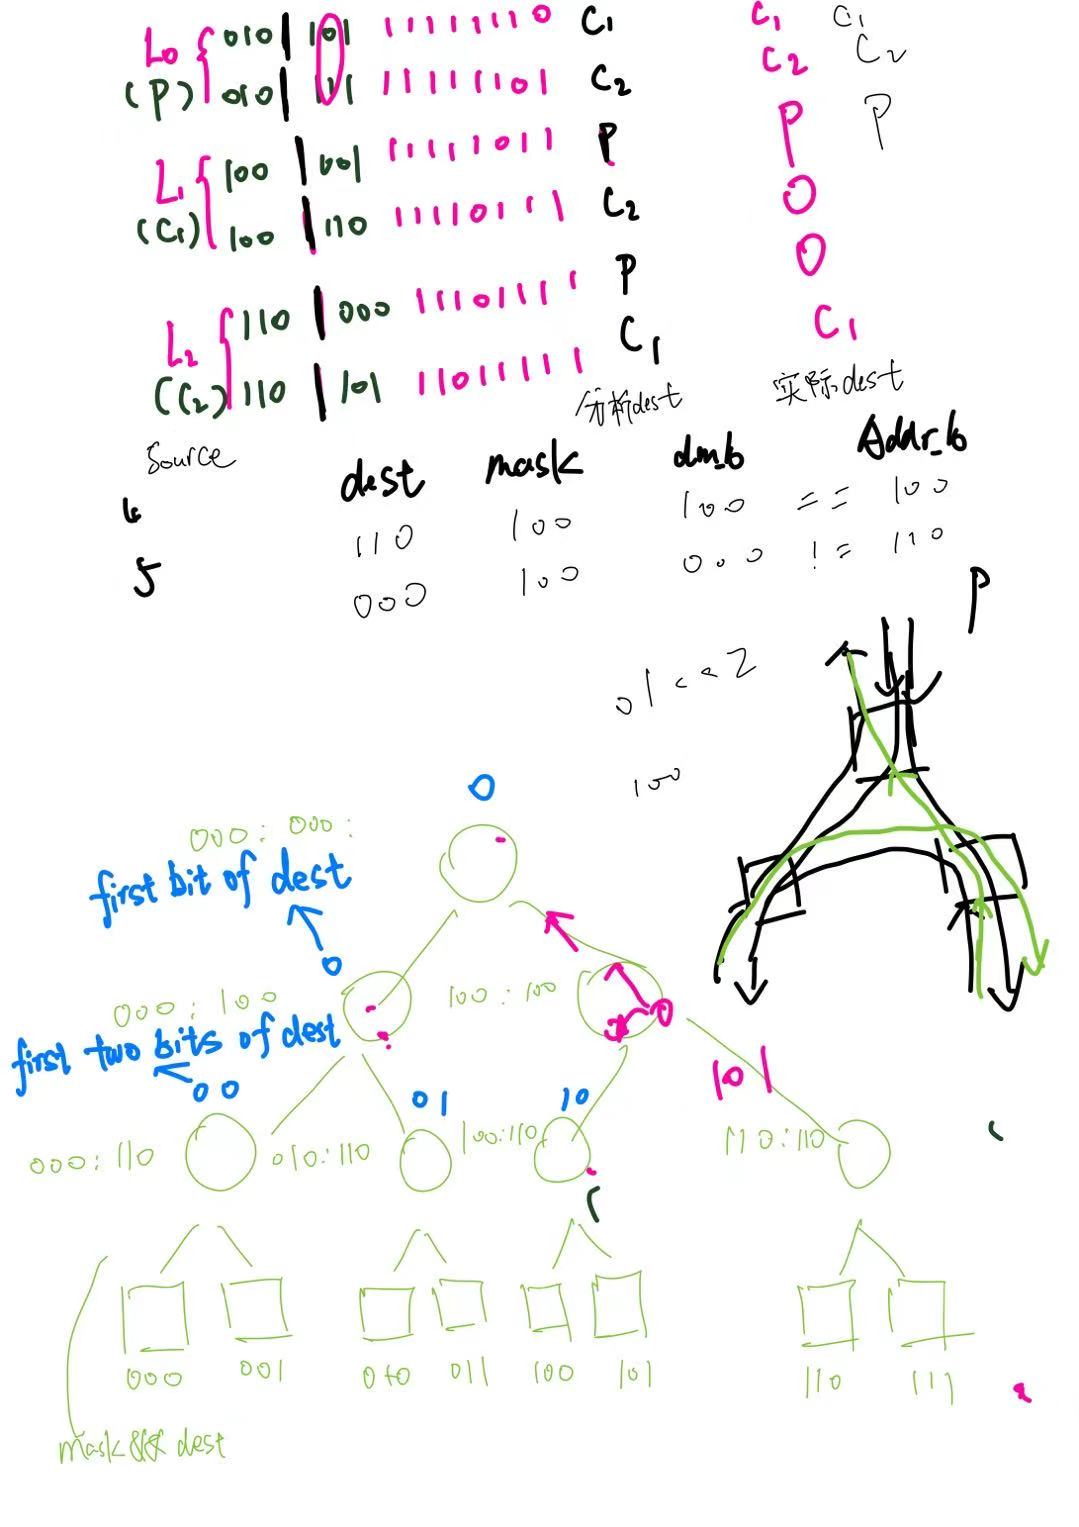 L0 { 010 | 101 11111110 C1 C1 C1
(P) 010 | 111 11111101 C2 C2 C2
L1 { 100 | 001 11111011 P P P
(C1) 100 | 110 11110111 C2 O
L2 { 110 | 000 11101111 P O
(C2) 110 | 101 11011111 C1 C1
Source 分析dest 实际dest
dest mask dm_b Addr_b
4 110 100 100 == 100
5 000 100 000 != 110
P
01<<2
100
0
000: 000:
first bit of dest
0
000: 100 100: 100
first two bits of dest
00 01 10 101
000: 110 010:110 100:110 110:110
000 001 010 011 100 101 110 111
mask&& dest